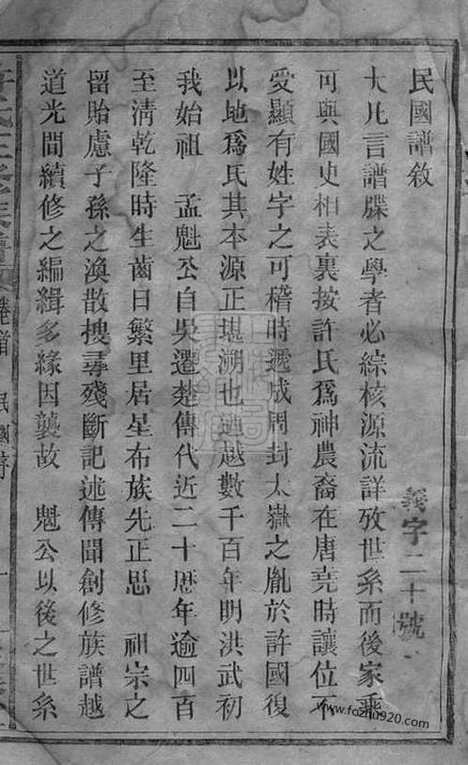 民國譜敘
大凡言譜牒之學者必綜核源流詳攷世系而後家乘
可與國史相表裏按許氏爲神農裔在唐堯時讓位不
受顯有姓字之可稽時遞成周封太嶽之胤於許國復
以地爲氏其本源正堪溯也迪越數千百年明洪武初
我始祖 孟魁公自吳遷楚傳代近二十歷年逾四百
至清乾隆時生齒日繁里居星布族先正思 祖宗之
留貽慮子孫之渙散搜尋殘斷記述傳聞創修族譜越
道光間續修之編緝多緣因襲故 魁公以後之世系
義字二十號
卷首 民國譜
www.fozhu920.com